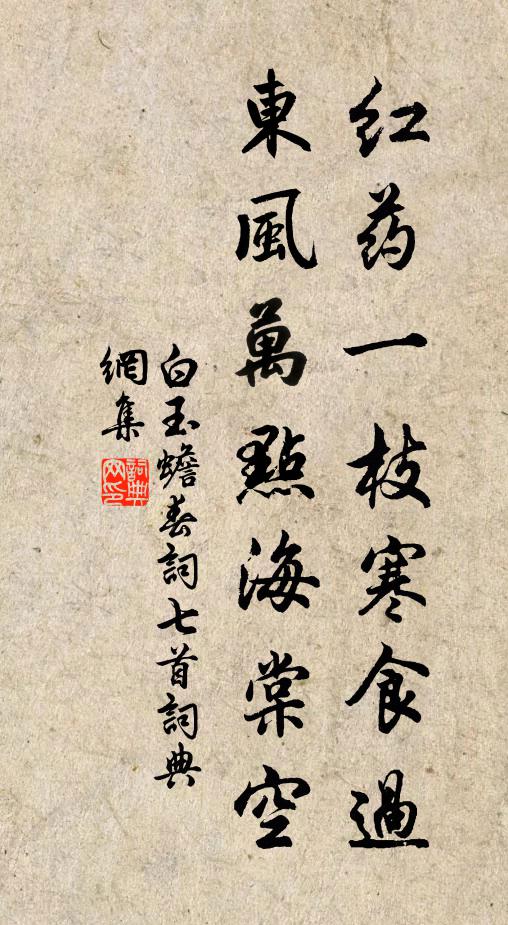 紅药一枝寒食過
東風萬點海棠空
白玉蟾春詞七首詞典
網集
詞典
网印